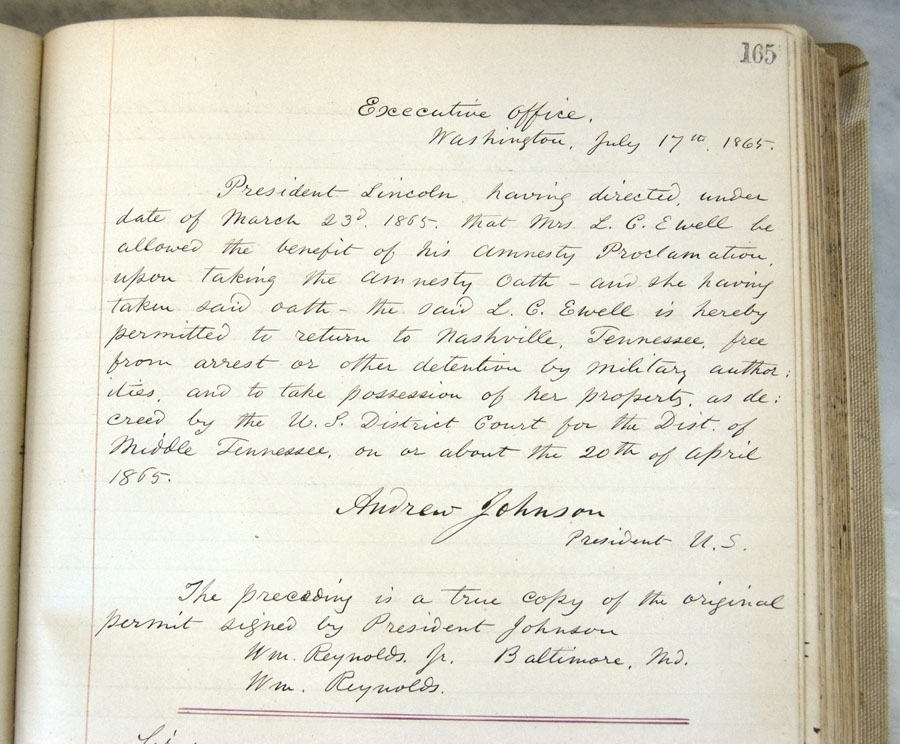 165
Executive Office,
Washington, July 17th, 1865.
President Lincoln having directed, under
date of March 23d, 1865, that Mrs. L. C. Ewell be
allowed the benefit of his Amnesty Proclamation,
upon taking the Amnesty Oath - and she having
taken said oath - the said L. C. Ewell is hereby
permitted to return to Nashville, Tennessee, free
from arrest or other detention by military author:
ities, and to take possession of her property, as de:
creed by the U. S. District Court for the Dist. of
Middle Tennessee, on or about the 20th of April
1865.
Andrew Johnson
President U. S.
The preceding is a true copy of the original
permit signed by President Johnson
Wm. Reynolds. Jr. Baltimore, Md.
Wm. Reynolds.